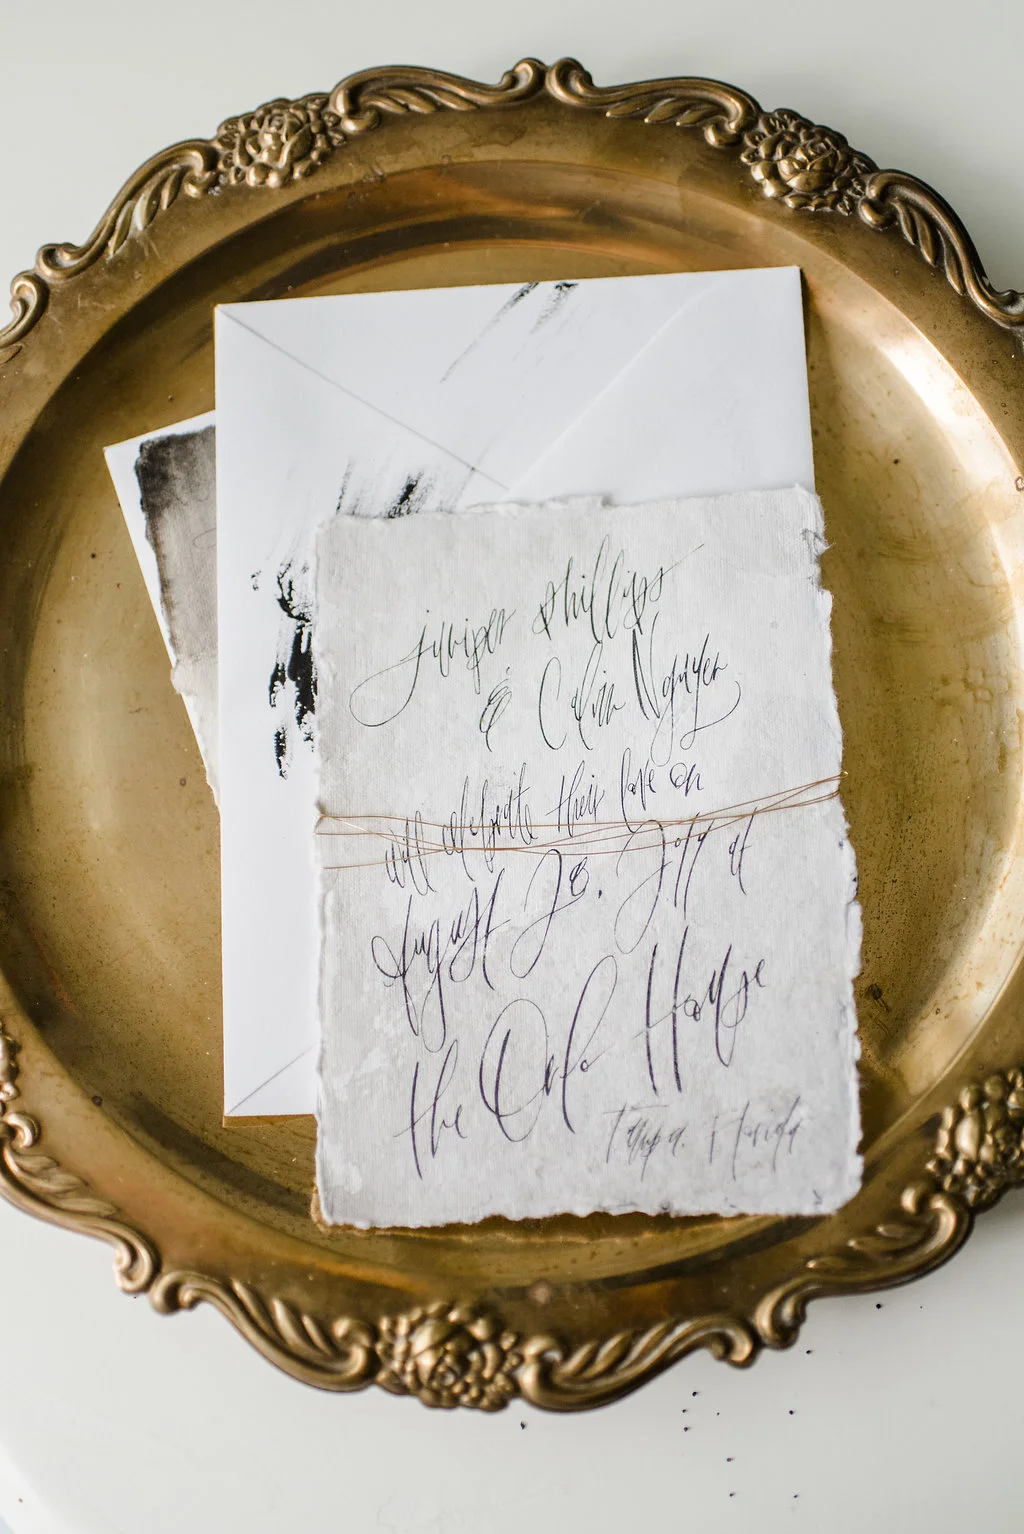 Juniper Phillips
& Calvin Nguyen
will celebrate their love on
August 28, 2019 at
the Orlo House
Tampa, Florida